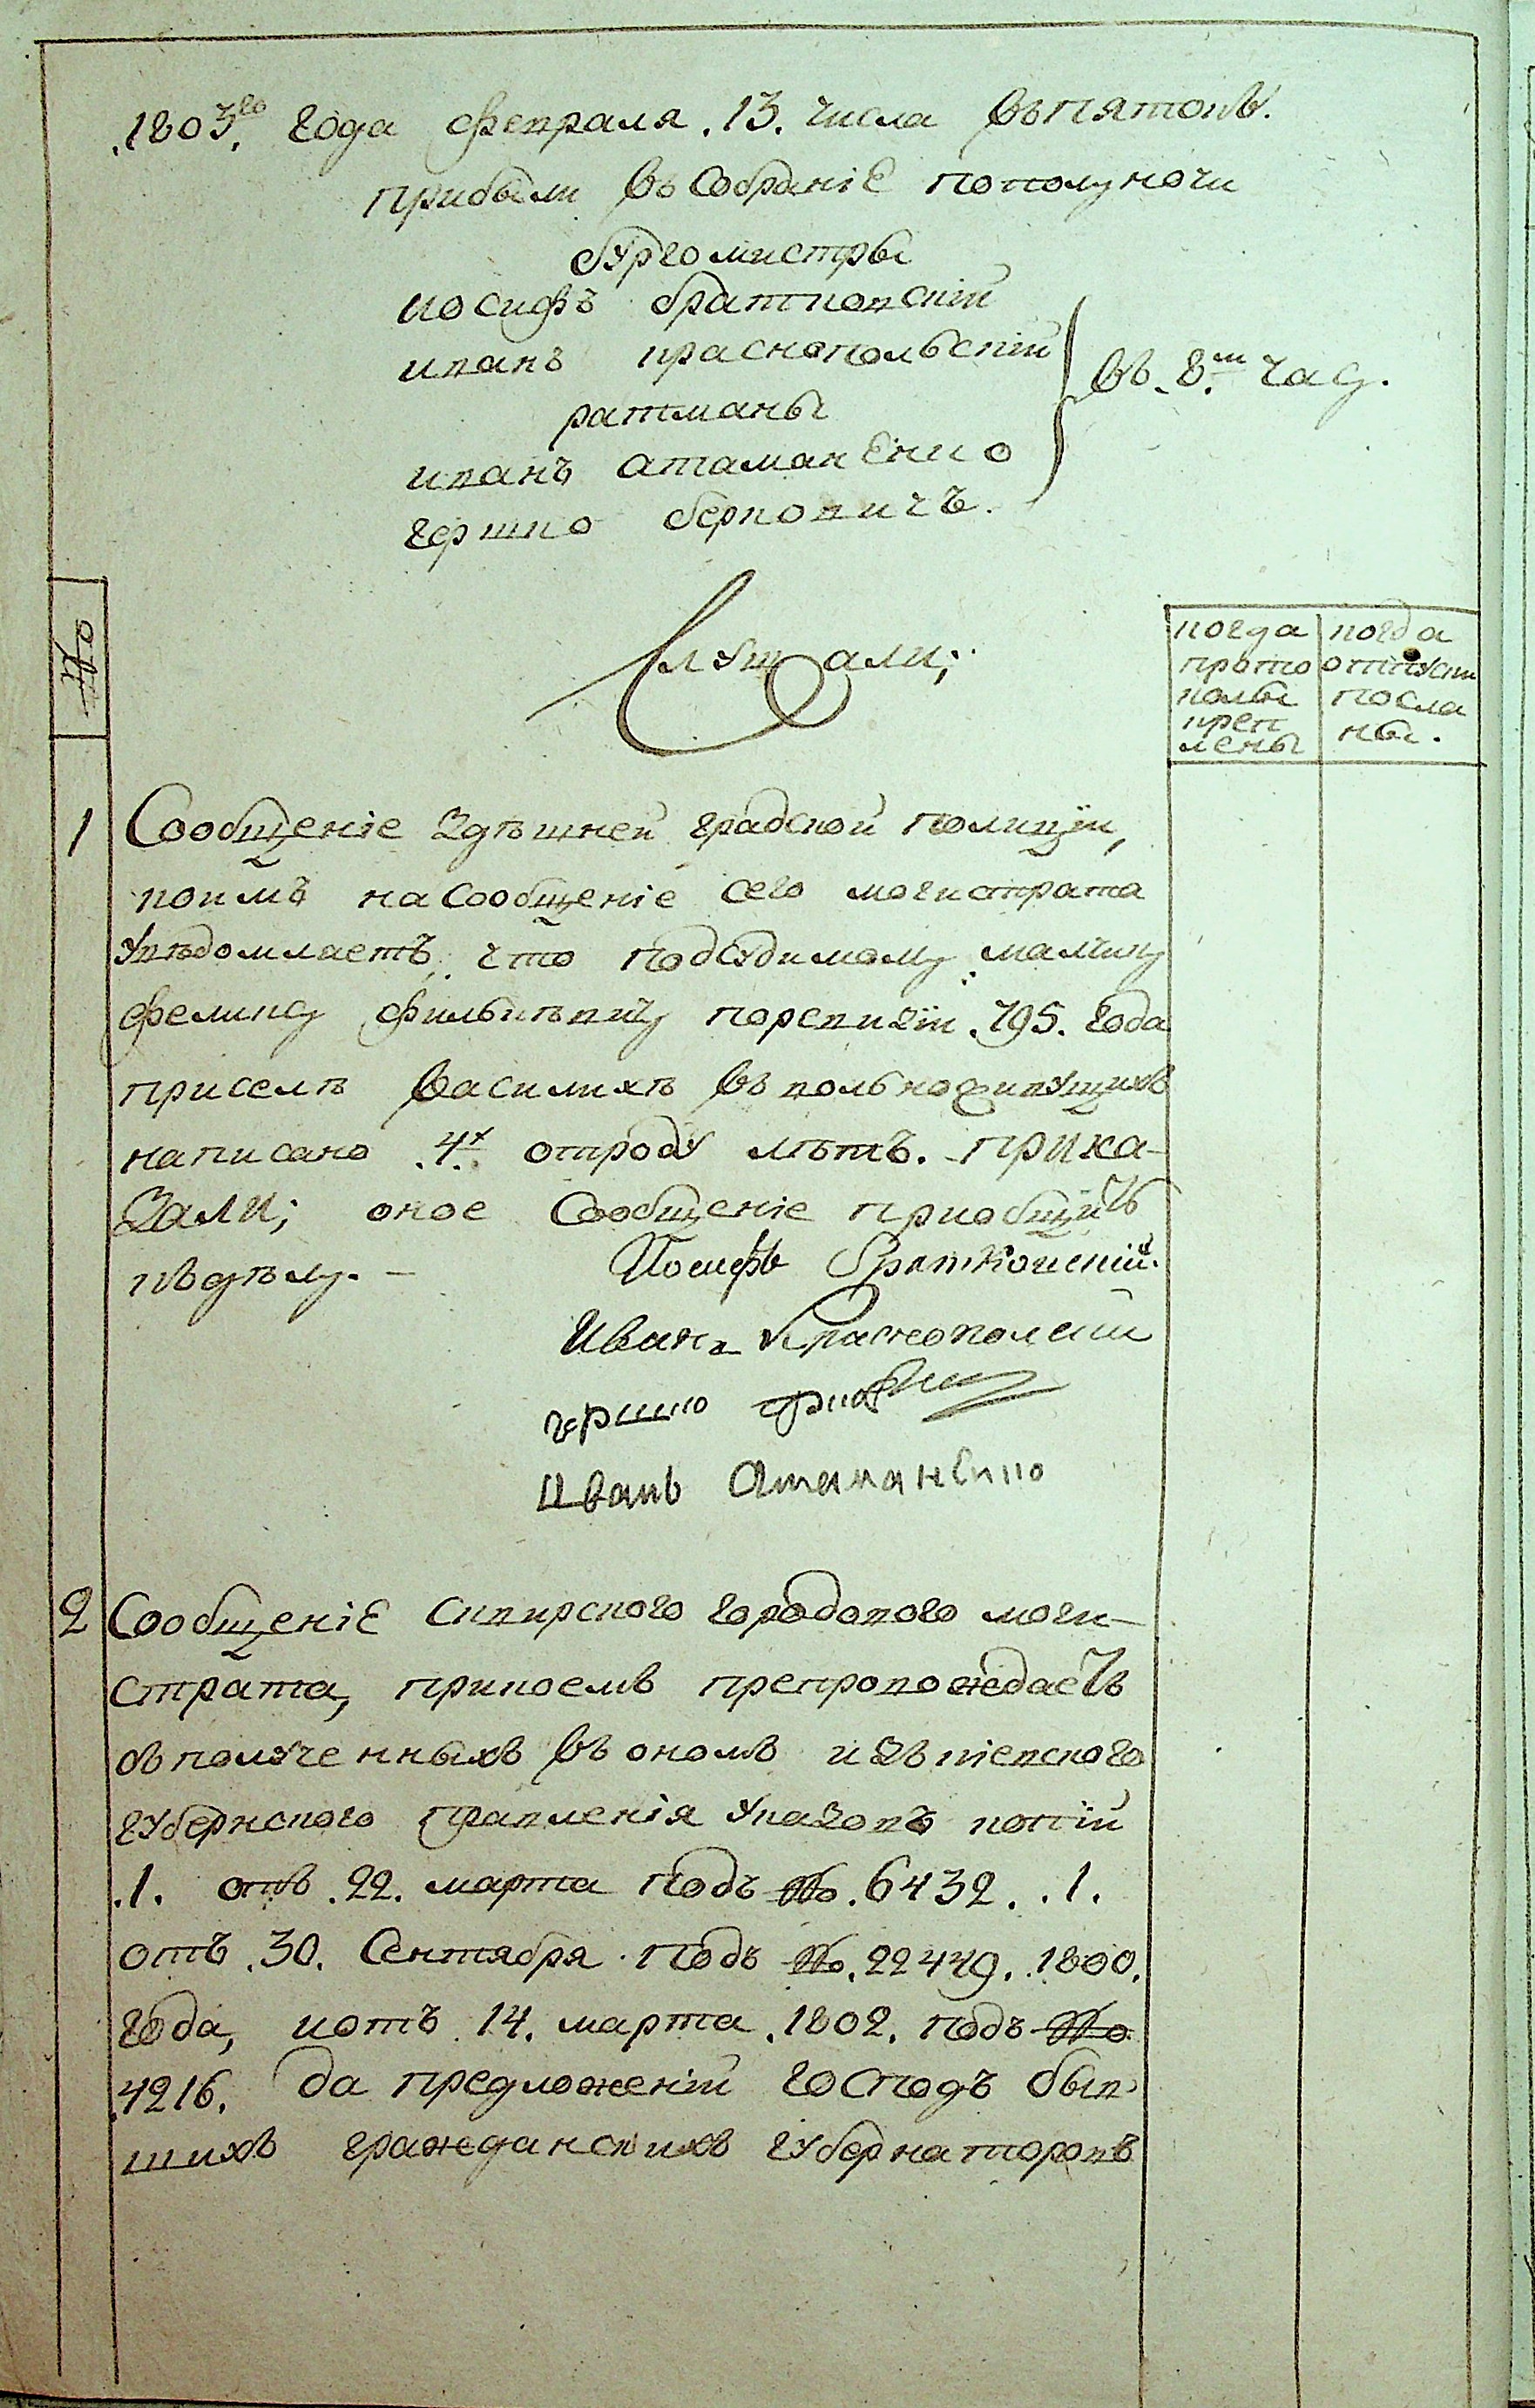 .1803го. года февраля .13. числа въ пятокъ.
прибыли въ Собраніе пополуночи
бургомистры
иосифъ братковскій
иванъ краснопольскій
въ .8.м часу.
ратманы
иванъ атаманенко
гершко берковичъ.
№
Слушали;
когда
прото
колы
креп
лены
когда
отпуски
посла
ны.
1
Сообщеніе здѣшней градской полиціи,
коимъ на сообщеніе сего магистрата
увѣдомляетъ, что подсудимому малину
поревизіи .795. года
приселѣ василихѣ въ вольноживущихъ
написано .4х. отроду лѣтъ. - прика-
зали; оное Сообщеніе приобщить
къ дѣлу. -
Иосифъ Братковскій.
Иванъ Краснополскій
гершко
Иванъ Атаманенко
2
Сообщеніе сквирского городового маги-
страта, прикоемъ препровождаетъ
съ полученныхъ въ ономъ изъ кіевского
губернского правленія указовъ копій
.1. отъ .22. марта подъ №. 6432. .1.
отъ .30. Сентября подъ №. 22449. 1800.
года, иотъ .14. марта .1802. подъ №
4216. да предложеній господъ быв-
шихъ гражданскихъ губернаторовъ